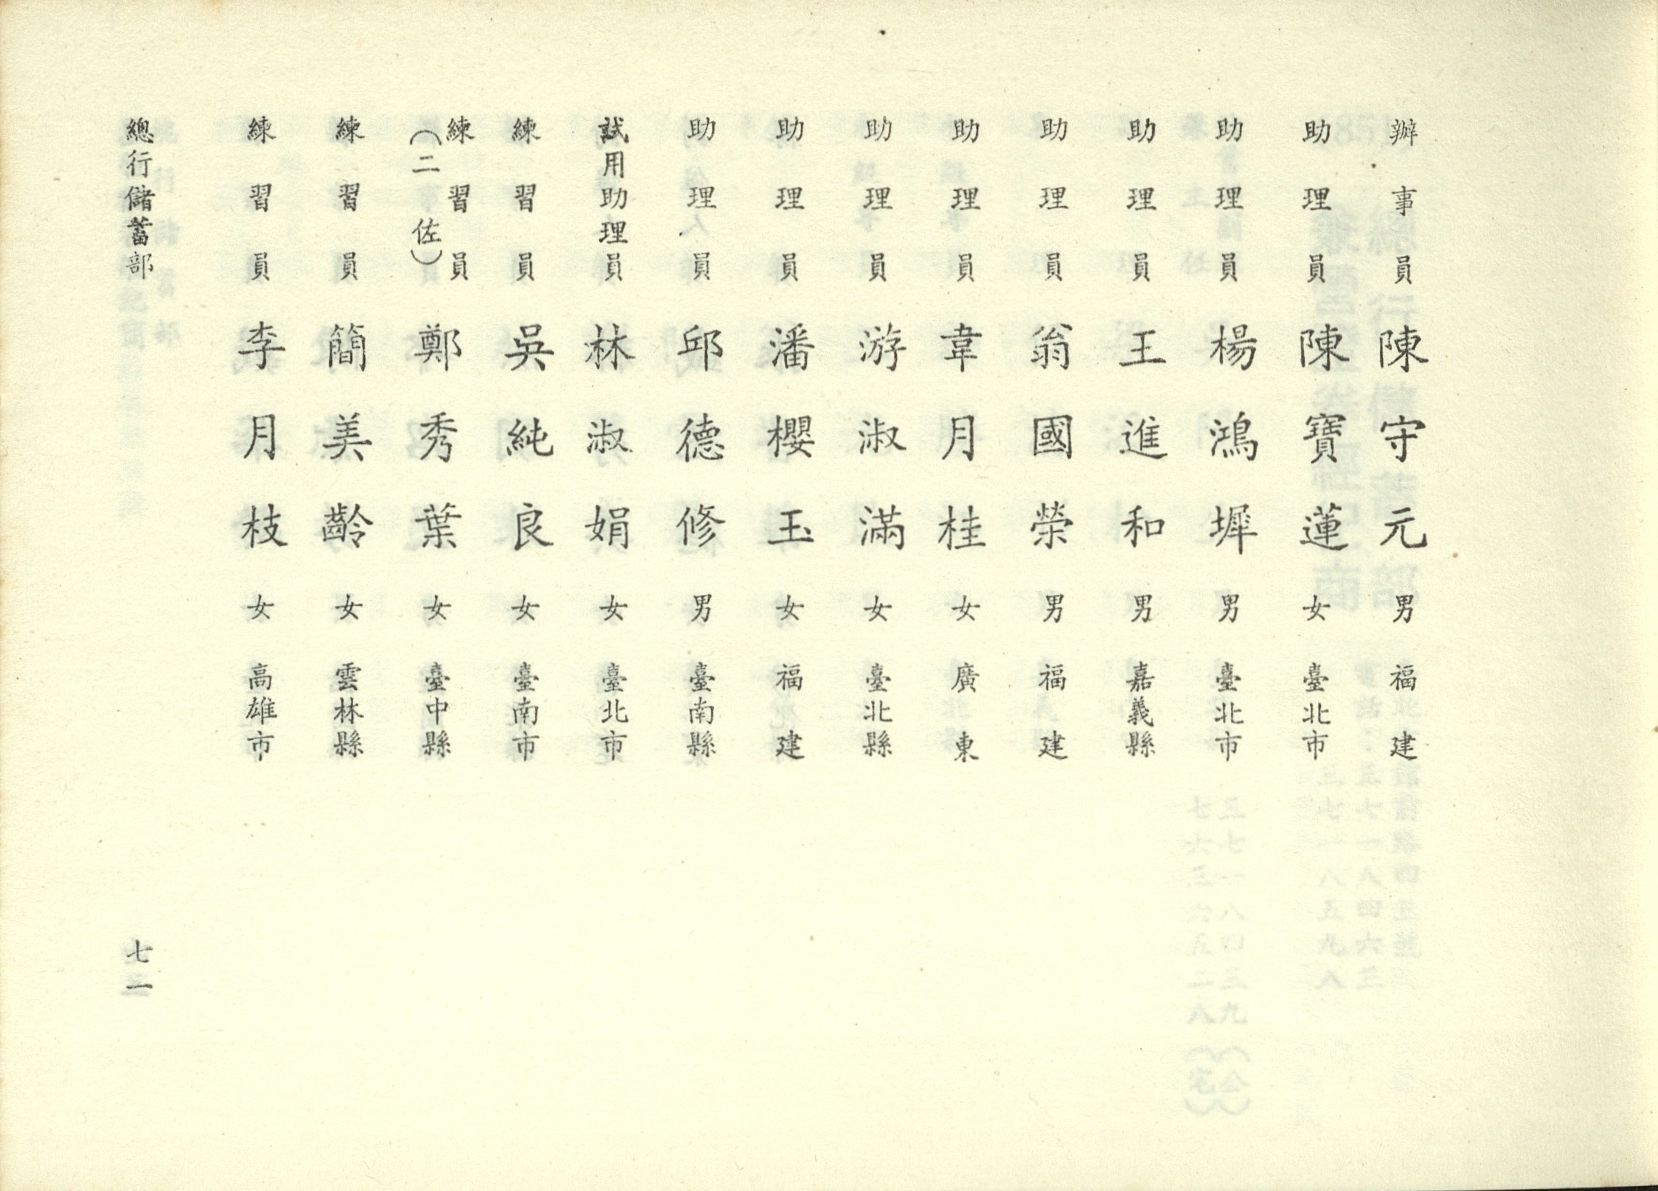 辦事員 陳守元 男 福建
助理員 陳寶蓮 女 臺北市
助理員 楊鴻墀 男 臺北市
助理員 王進和 男 嘉義縣
助理員 翁國榮 男 福建
助理員 韋月桂 女 廣東
助理員 游淑滿 女 臺北縣
助理員 潘櫻玉 女 福建
助理員 邱德修 男 臺南縣
試用助理員 林淑娟 女 臺北市
練習員 吳純良 女 臺南市
練習員(二佐) 鄭秀葉 女 臺中縣
練習員 簡美齡 女 雲林縣
練習員 李月枝 女 高雄市
總行儲蓄部 七一